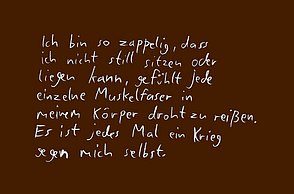 Ich bin so zappelig, dass
ich nicht still sitzen oder
liegen kann, gefühlt jede
einzelne Muskelfaser in
meinem Körper droht zu reißen.
Es ist jedes Mal ein Krieg
gegen mich selbst.